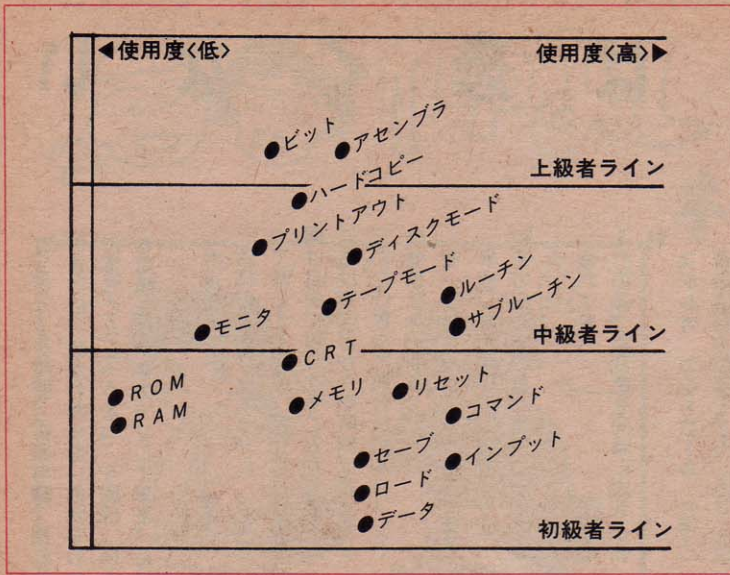 ◀使用度<低>
使用度<高>▶
●ビット
●アセンブラ
上級者ライン
●ハードコピー
●プリントアウト
●ディスクモード
●テープモード
●ルーチン
●サブルーチン
●モニタ
中級者ライン
●CRT
●ROM
●メモリ
●リセット
●RAM
●コマンド
●セーブ
●インプット
●ロード
●データ
初級者ライン